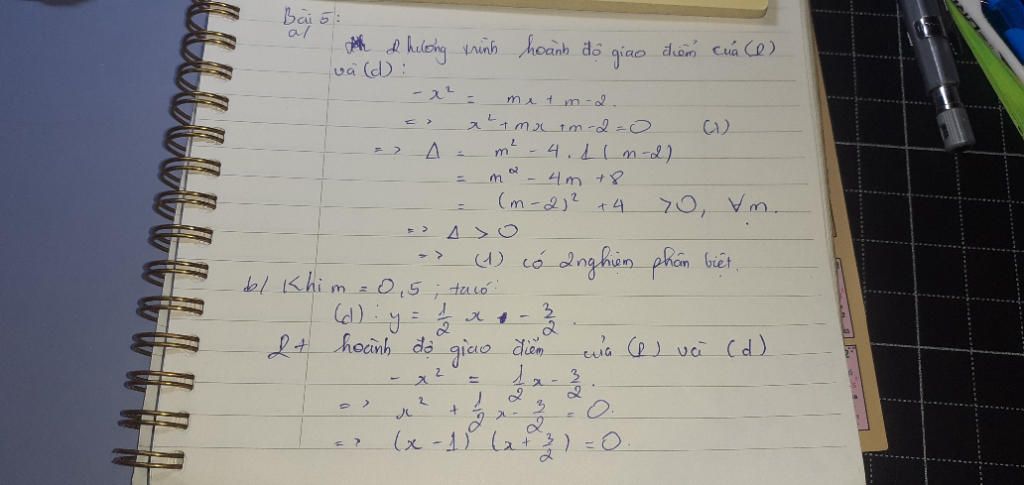 Bài 5:
a/
Phương trình hoành độ giao điểm của (P)
và (d) :
-x² = mx + m-2.
=> x² + mx + m-2 = 0 (1)
=> Δ = m² - 4.1(m-2)
= m² - 4m + 8
= (m-2)² + 4 > 0, ∀m.
=> Δ > 0
=> (1) có 2 nghiệm phân biệt.
b/ Khi m = 0,5 ; ta có:
(d) : y = 1/2 x - 3/2.
Pt hoành độ giao điểm của (P) và (d)
- x² = 1/2 x - 3/2.
=> x² + 1/2 x - 3/2 = 0.
=> (x - 1) (x + 3/2) = 0.